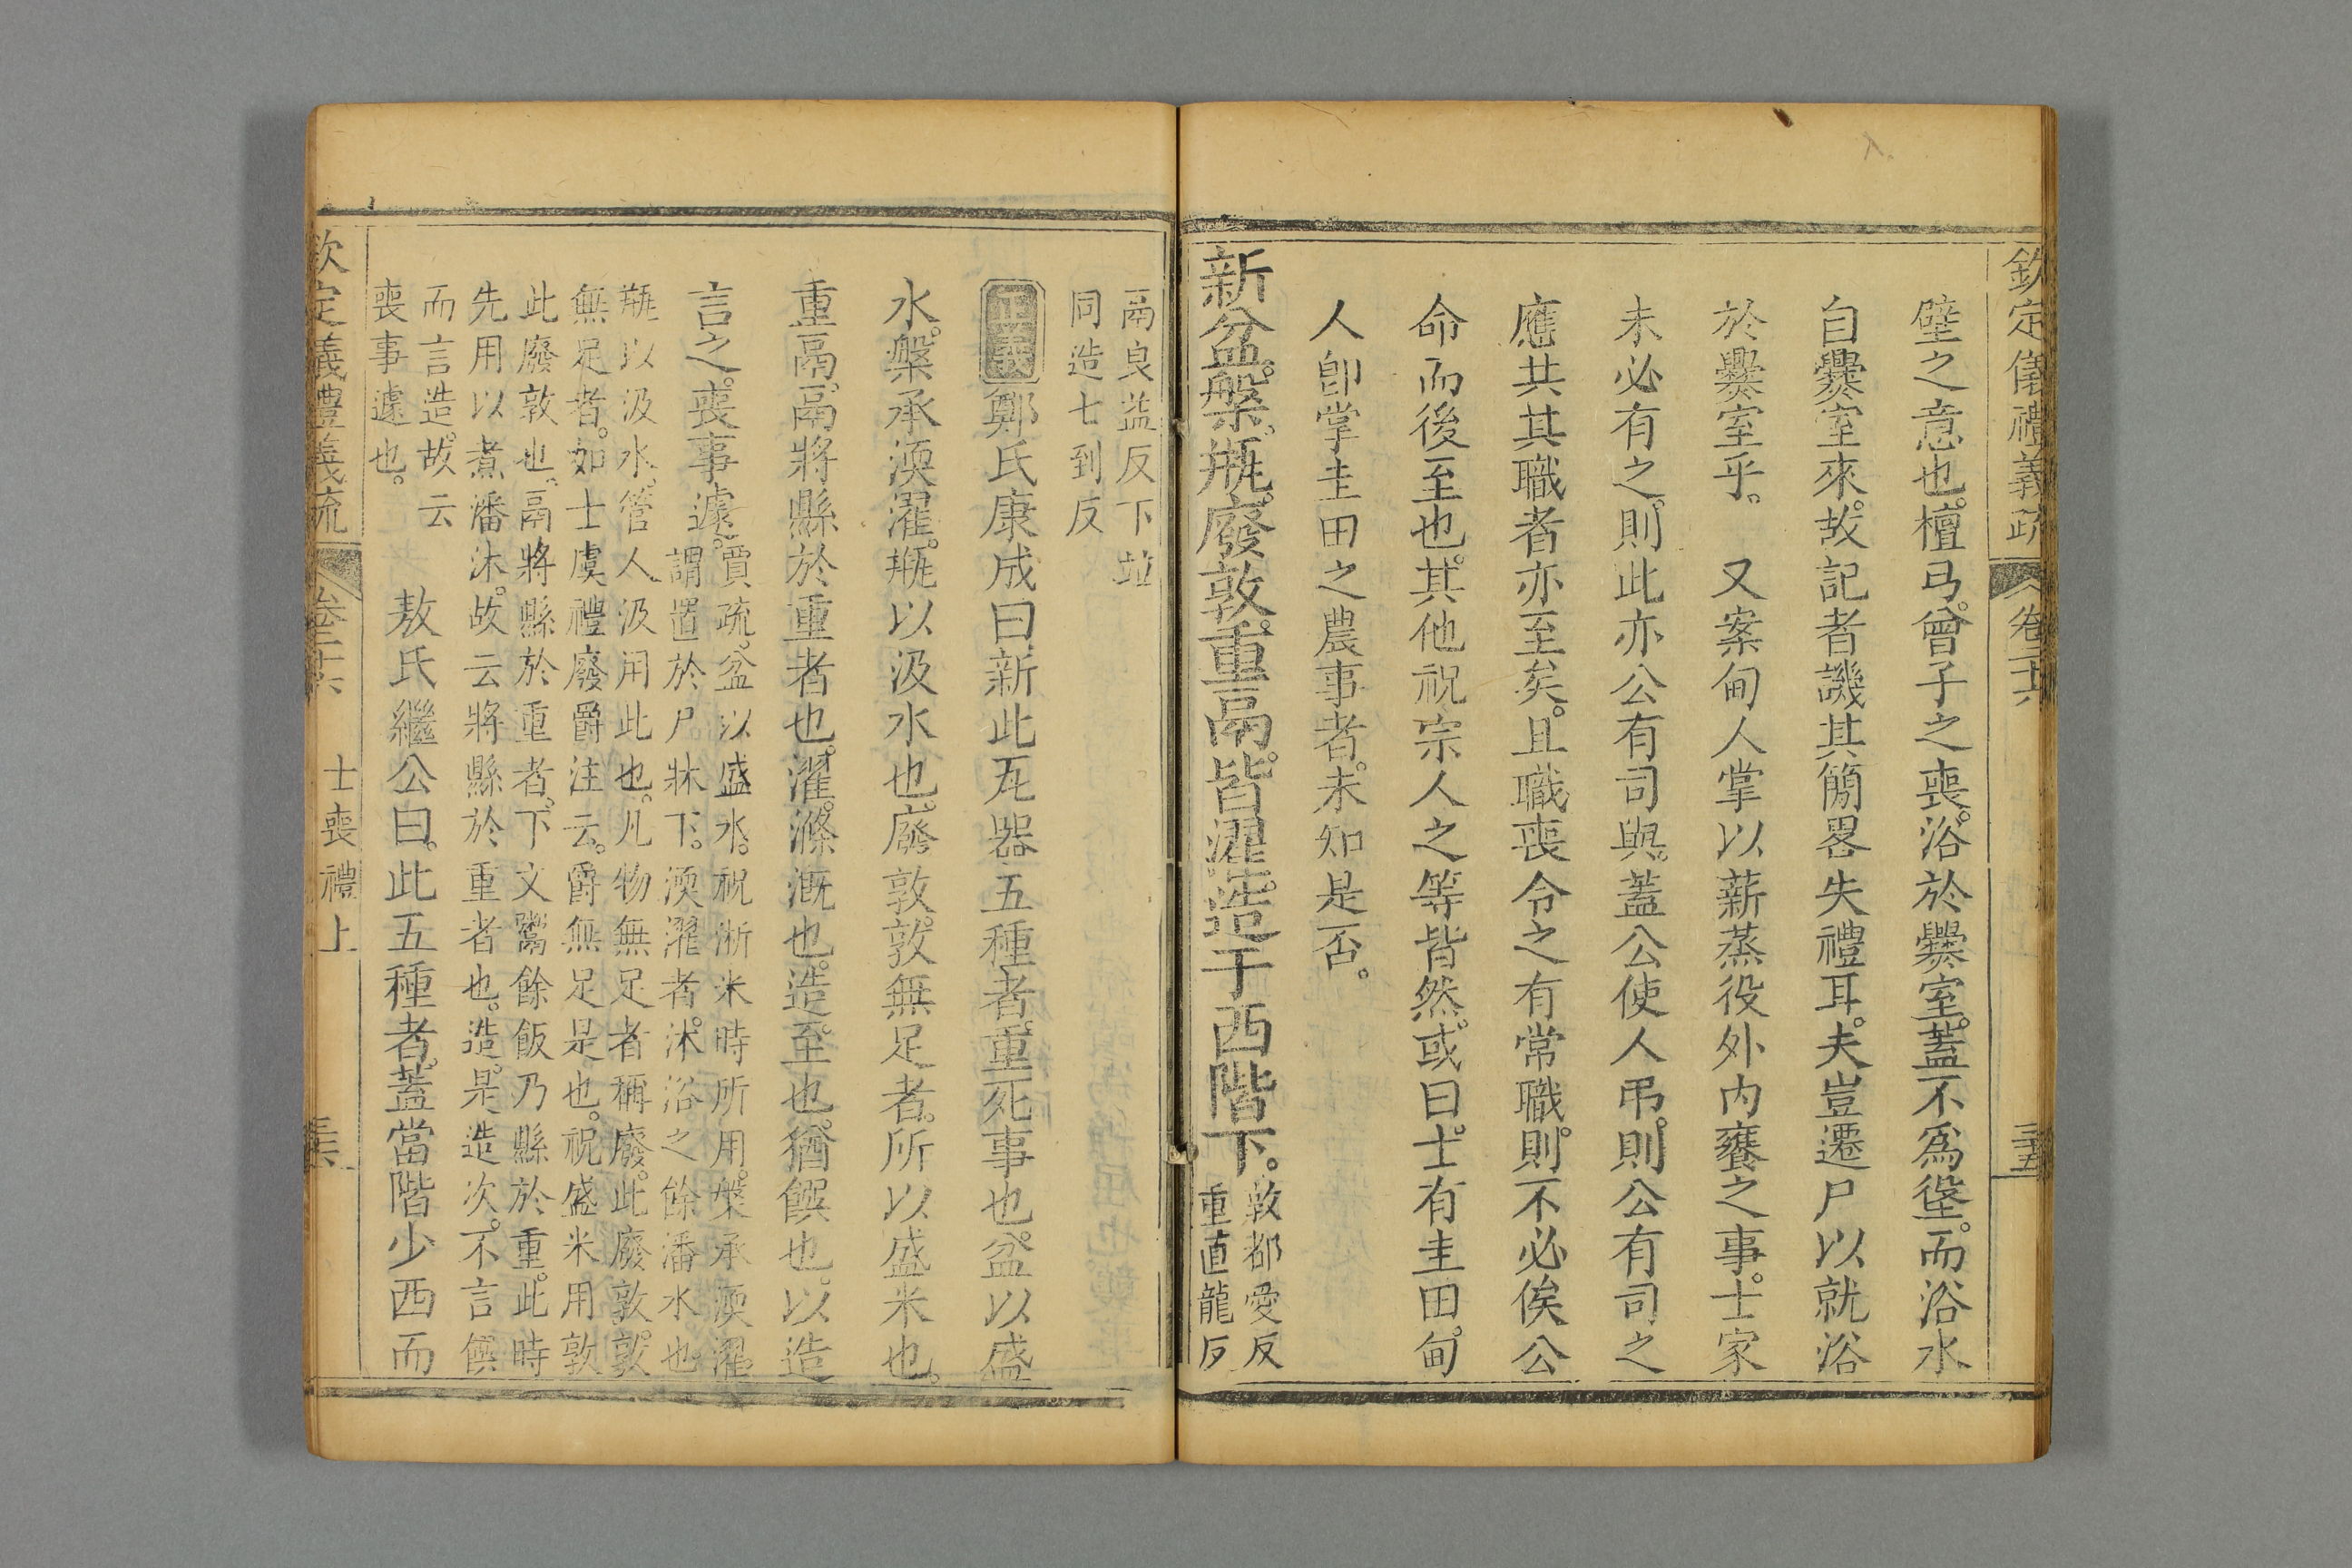 欽定儀禮義疏 卷二十六 三五
壁之意也。檀弓。曾子之喪。浴於爨室。蓋不爲垼。而浴水
自爨室來。故記者譏其簡畧失禮耳。夫豈遷尸以就浴
於爨室乎。 又案甸人掌以薪蒸役外内饔之事。士家
未必有之。則此亦公有司與。蓋公使人弔。則公有司之
應共其職者亦至矣。且職喪令之有常職。則不必俟公
命而後至也。其他祝宗人之等皆然。或曰。士有圭田。甸
人卽掌圭田之農事者。未知是否。
新盆。槃。甁。廢敦。重鬲。皆濯。造于西階下。敦都愛反
重直龍反
鬲良益反下竝
同造七到反
正義鄭氏康成曰。新此瓦器五種者。重死事也。盆以盛
水。槃承渜濯。甁以汲水也。廢敦。敦無足者。所以盛米也。
重鬲。鬲將縣於重者也。濯。滌漑也。造。至也。猶饌也。以造
言之。喪事遽。賈疏。盆以盛水。祝淅米時所用。槃承渜濯
謂置於尸牀下。渜濯者。沐浴之餘潘水也
甁以汲水。管人汲用此也。凡物無足者稱廢。此廢敦。敦
無足者。如士虞禮廢爵注云。爵無足是也。祝盛米用敦
此廢敦也。鬲將縣於重者。下文鬻餘飯乃縣於重。此時
先用以煮潘沐。故云將縣於重者也。造。是造次。不言饌
而言造。故云
喪事遽也。
敖氏繼公曰。此五種者。蓋當階少西而
欽定儀禮義疏 卷二十六 士喪禮上 三六